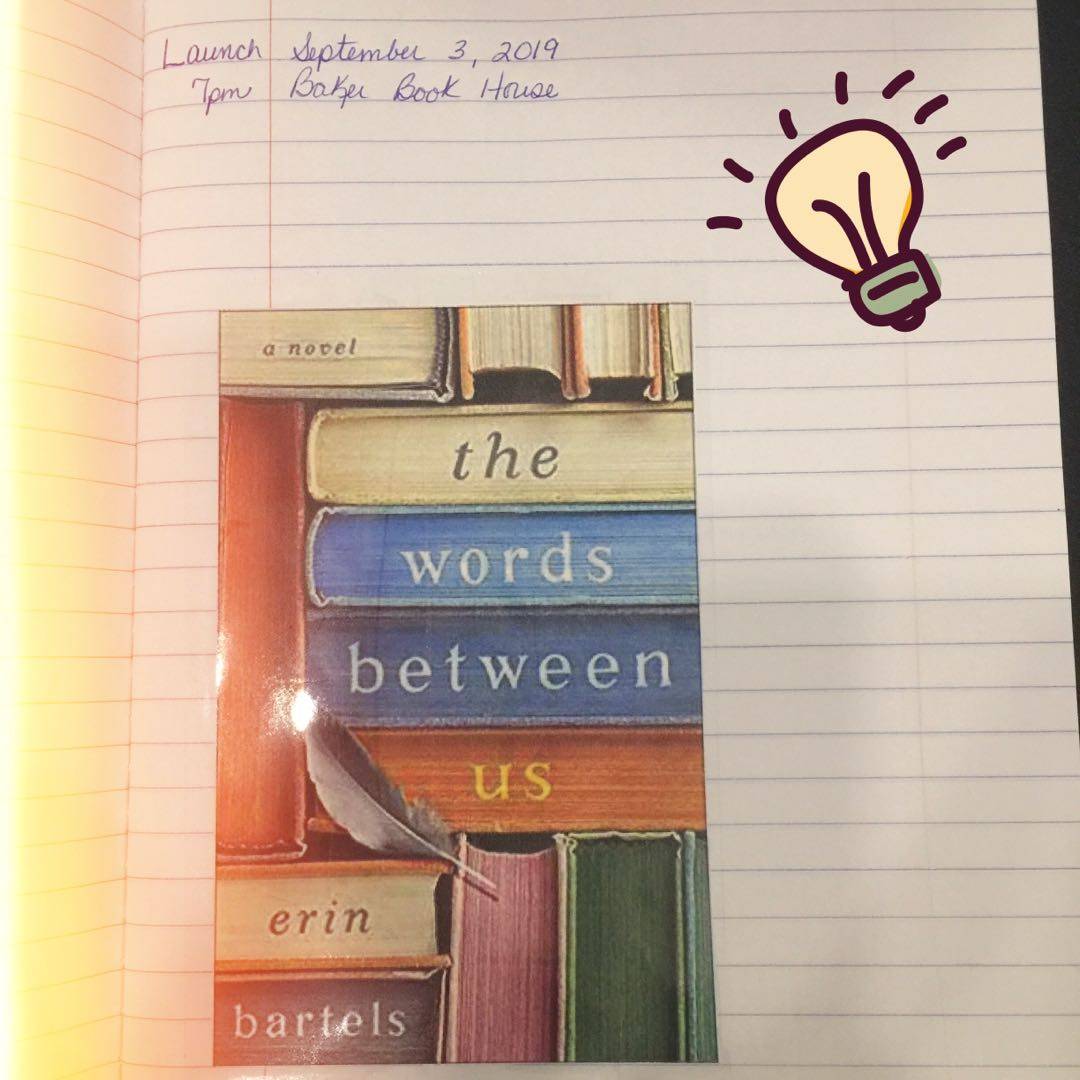 Launch September 3, 2019
7pm Baker Book House
a novel
the
words
between
us
erin
bartels